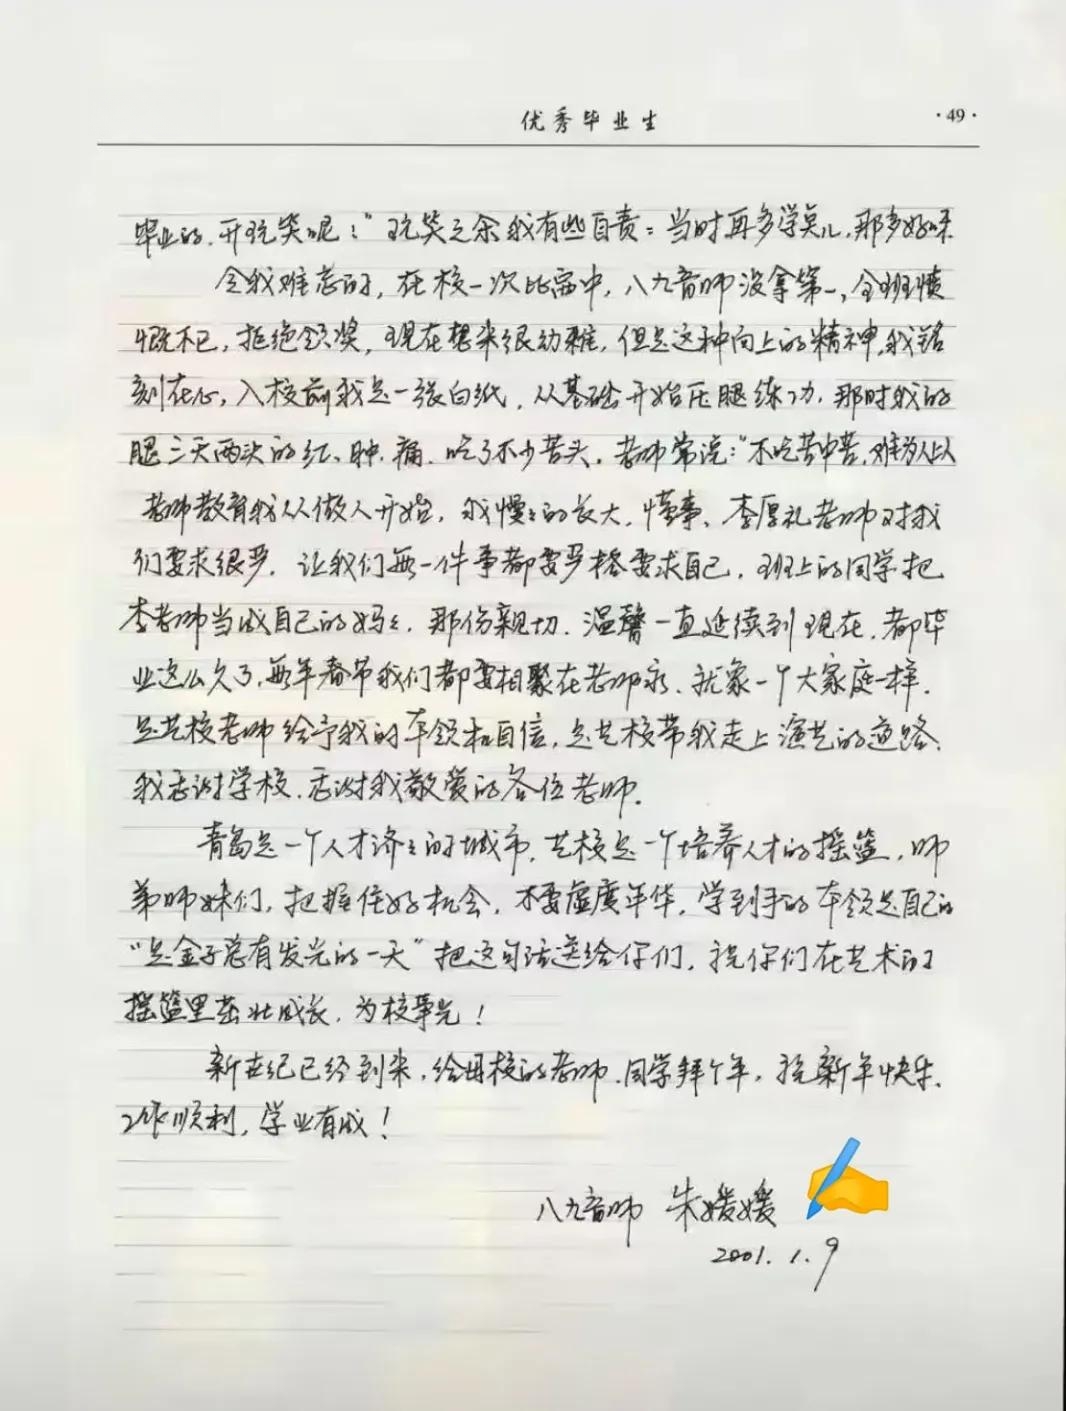 优秀毕业生
·49·
毕业的,开玩笑呢!"玩笑之余我有些自责:当时再多学点儿,那多好呀
令我难忘的,在校一次比赛中,八九音师没拿第一,全班愤
慨不已,拒绝领奖,现在想来很幼稚,但是这种向上的精神,我铭
刻在心,入校前我是一张白纸,从基础开始压腿练功,那时我的
腿三天两次的红、肿、痛,吃了不少苦头,老师常说:"不吃苦中苦,难为人上人
老师教育我从做人开始,我慢慢的长大,懂事、李厚礼老师对我
们要求很严,让我们每一件事都要严格要求自己,班上的同学把
李老师当成自己的妈妈,那份亲切、温馨一直延续到现在,都毕
业这么久了,每年春节我们都要相聚在老师家、就象一个大家庭一样,
是艺校老师给予我的本领和自信,是艺校带我走上演艺的道路、
我感谢学校、感谢我敬爱的各位老师。
青岛是一个人才济济的城市,艺校是一个培养人才的摇篮,师
弟师妹们,把握住好机会,不要虚度年华,学到手的本领是自己的
"是金子总有发光的一天"把这句话送给你们,祝你们在艺术的
摇篮里茁壮成长,为校争光!
新世纪已经到来,给母校的老师、同学拜个年,祝新年快乐、
工作顺利,学业有成!
八九音师 朱媛媛
2001.1.9